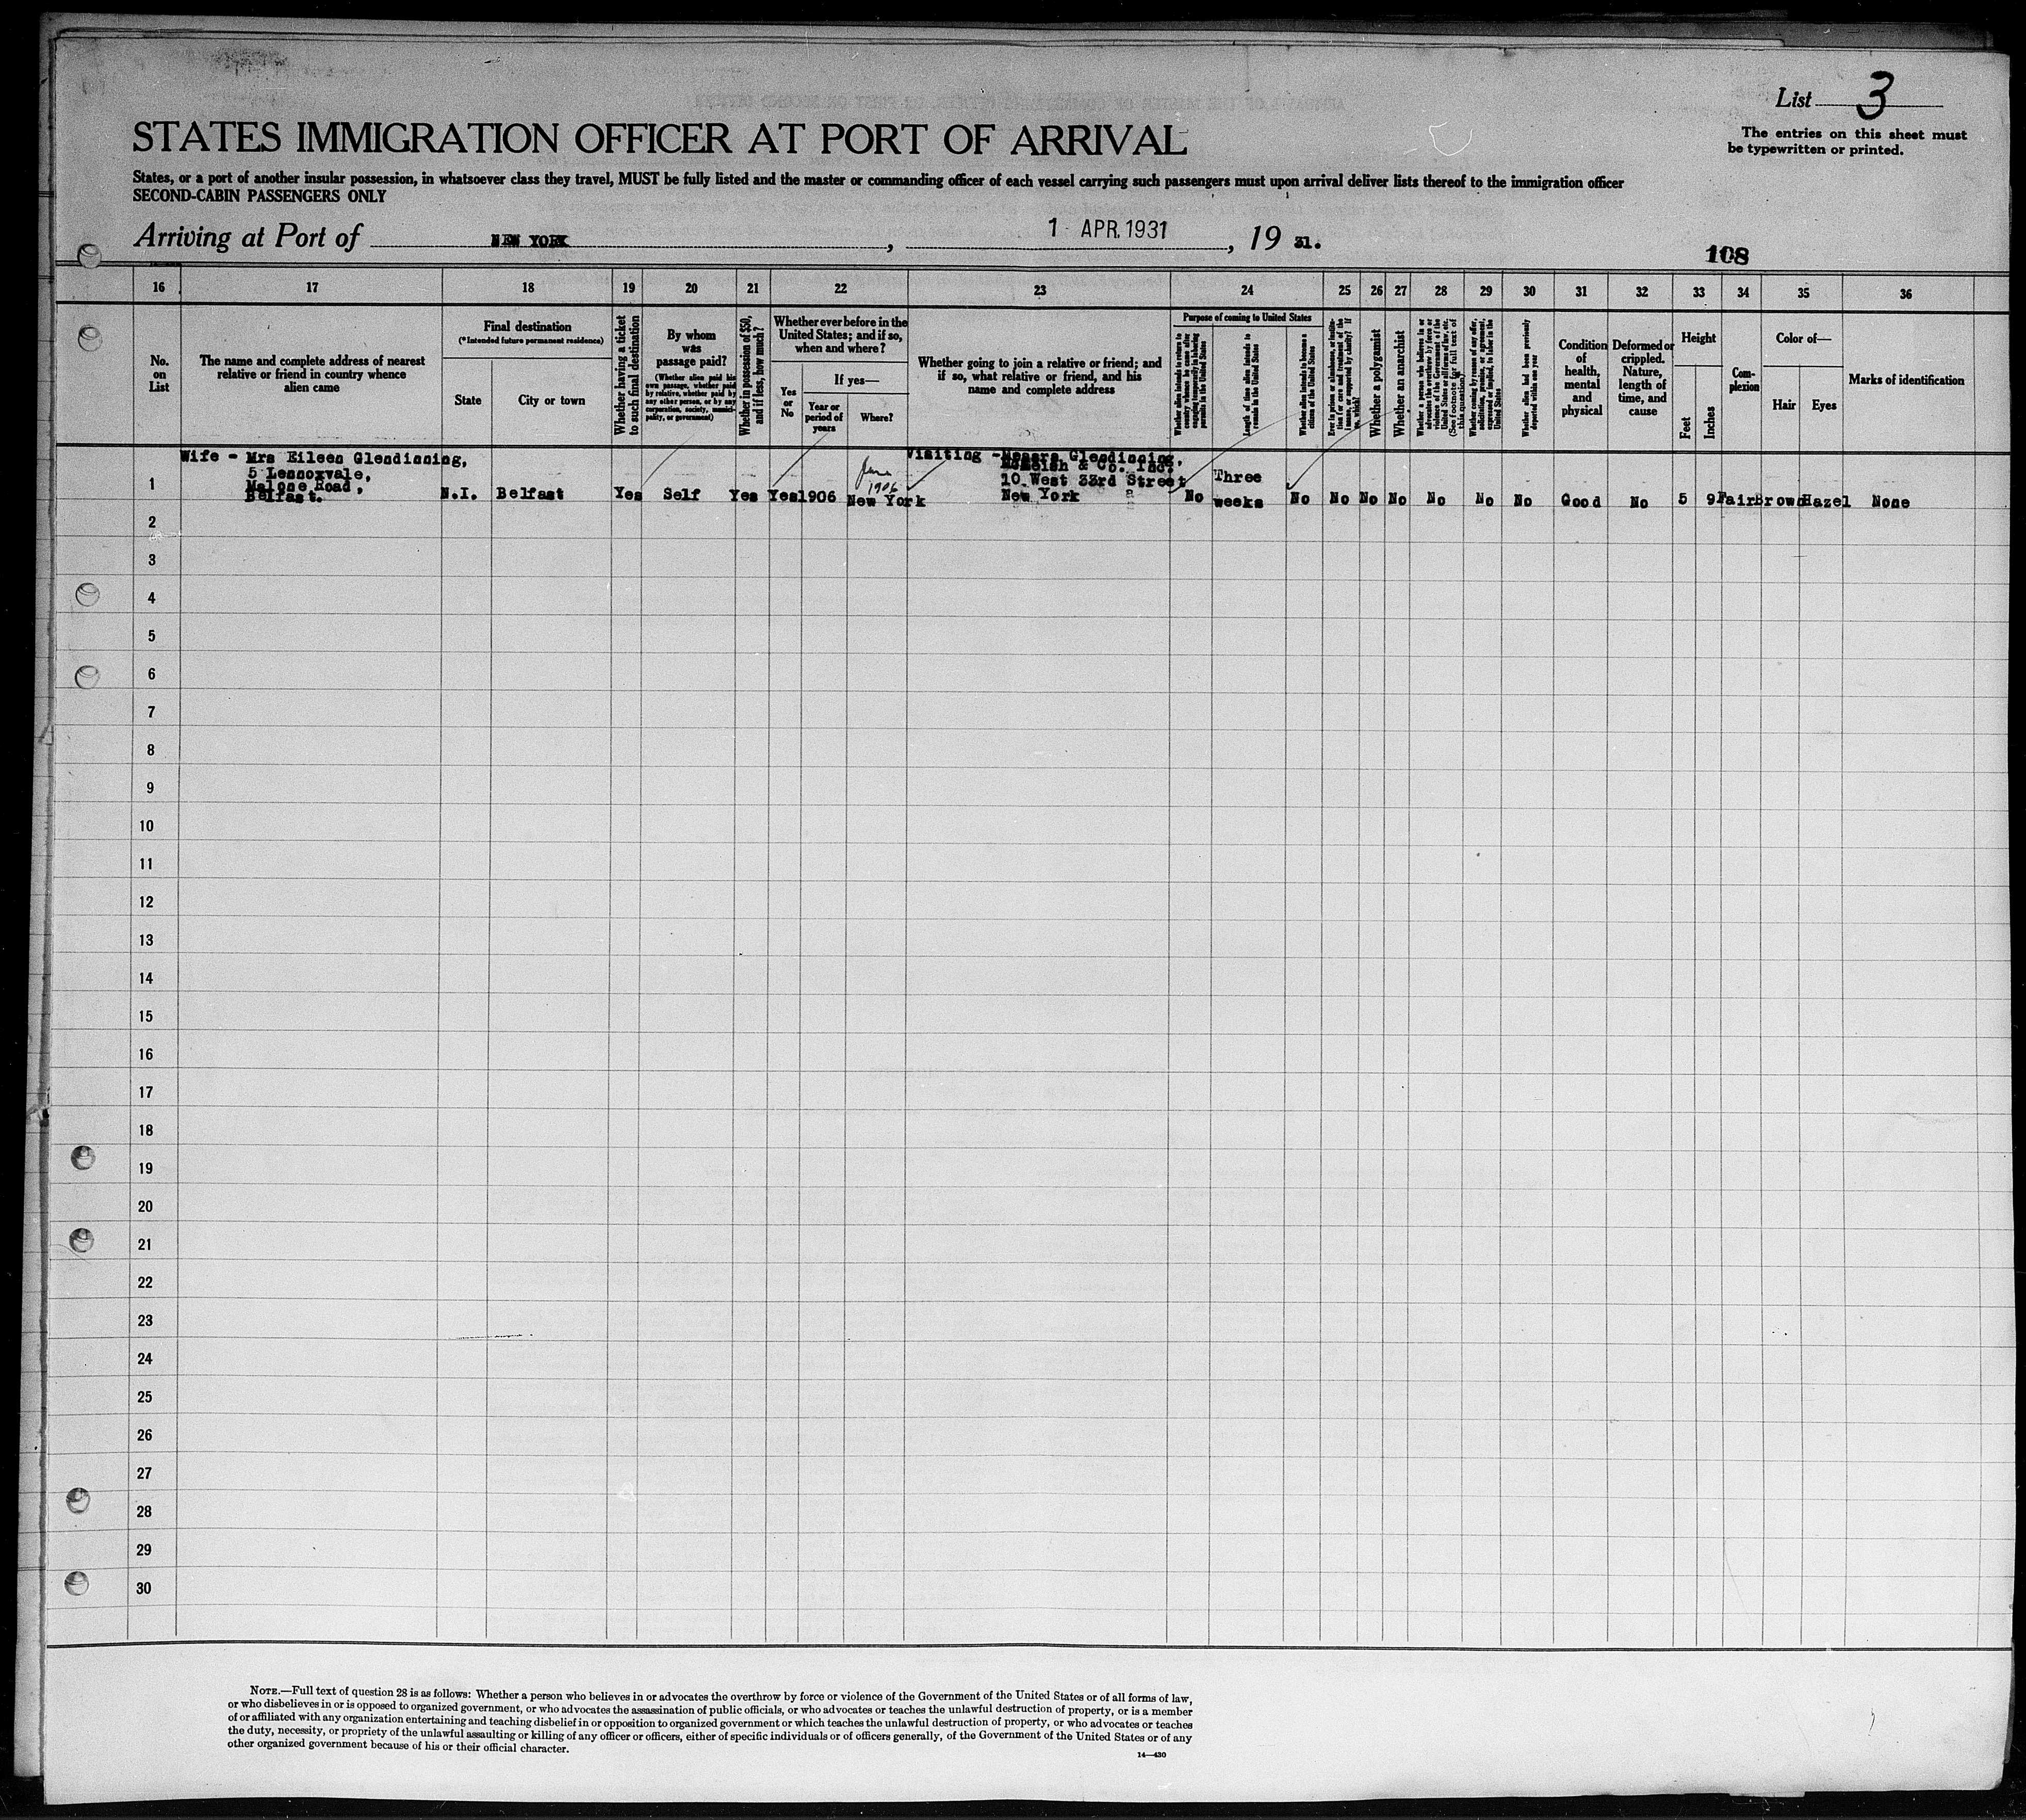 List 3
The entries on this sheet must
be typewritten or printed.
STATES IMMIGRATION OFFICER AT PORT OF ARRIVAL
States, or a port of another insular possession, in whatsoever class they travel, MUST be fully listed and the master or commanding officer of each vessel carrying such passengers must upon arrival deliver lists thereof to the immigration officer
SECOND-CABIN PASSENGERS ONLY
Arriving at Port of NEW YORK, 1 APR. 1931, 19 31.
108
16 17 18 19 20 21 22 23 24 25 26 27 28 29 30 31 32 33 34 35 36
No.
on
List
The name and complete address of nearest
relative or friend in country whence
alien came
Final destination
(*Intended future permanent residence)
State
City or town
Whether having a ticket
to such final destination
By whom
was
passage paid?
(Whether alien paid his
own passage, whether paid
by relative, whether paid by
any other person, or by any
corporation, society, munici-
pality, or government)
Whether in possession of $50,
and if less, how much?
Whether ever before in the
United States; and if so,
when and where?
Yes
or
No
If yes—
Year or
period of
years
Where?
Whether going to join a relative or friend; and
if so, what relative or friend, and his
name and complete address
Purpose of coming to United States
Whether alien intends to return to
country whence he came after
engaging temporarily in laboring
pursuits in the United States
Length of time alien intends to
remain in the United States
Whether alien intends to become a
citizen of the United States
Ever in prison or almshouse, or institu-
tion for care and treatment of the
insane, or supported by charity? If
so, which?
Whether a polygamist
Whether an anarchist
Whether a person who believes in or
advocates the overthrow by force or
violence of the Government of the
United States or all forms of law, etc.
(See footnote for full text of
this question)
Whether coming by reason of any offer,
solicitation, promise, or agreement,
expressed or implied, to labor in the
United States
Whether alien had been previously
deported within one year
Condition
of
health,
mental
and
physical
Deformed or
crippled.
Nature,
length of
time, and
cause
Height
Feet
Inches
Com-
plexion
Color of—
Hair
Eyes
Marks of identification
Wife - Mrs Eileen Glendinning,
5 Lennoxvale,
Malone Road,
Belfast.
N.I. Belfast Yes Self Yes Yes 1906
June
1906
New York
Visiting - Messrs Glendinning,
McLeish & Co. Inc,
10 West 33rd Street
New York
No
Three
weeks
No No No No No No No Good No 5 9 Fair Brown Hazel None
1
2
3
4
5
6
7
8
9
10
11
12
13
14
15
16
17
18
19
20
21
22
23
24
25
26
27
28
29
30
NOTE.—Full text of question 28 is as follows: Whether a person who believes in or advocates the overthrow by force or violence of the Government of the United States or of all forms of law,
or who disbelieves in or is opposed to organized government, or who advocates the assassination of public officials, or who advocates or teaches the unlawful destruction of property, or is a member
of or affiliated with any organization entertaining and teaching disbelief in or opposition to organized government or which teaches the unlawful destruction of property, or who advocates or teaches
the duty, necessity, or propriety of the unlawful assaulting or killing of any officer or officers, either of specific individuals or of officers generally, of the Government of the United States or of any
other organized government because of his or their official character.
14—430